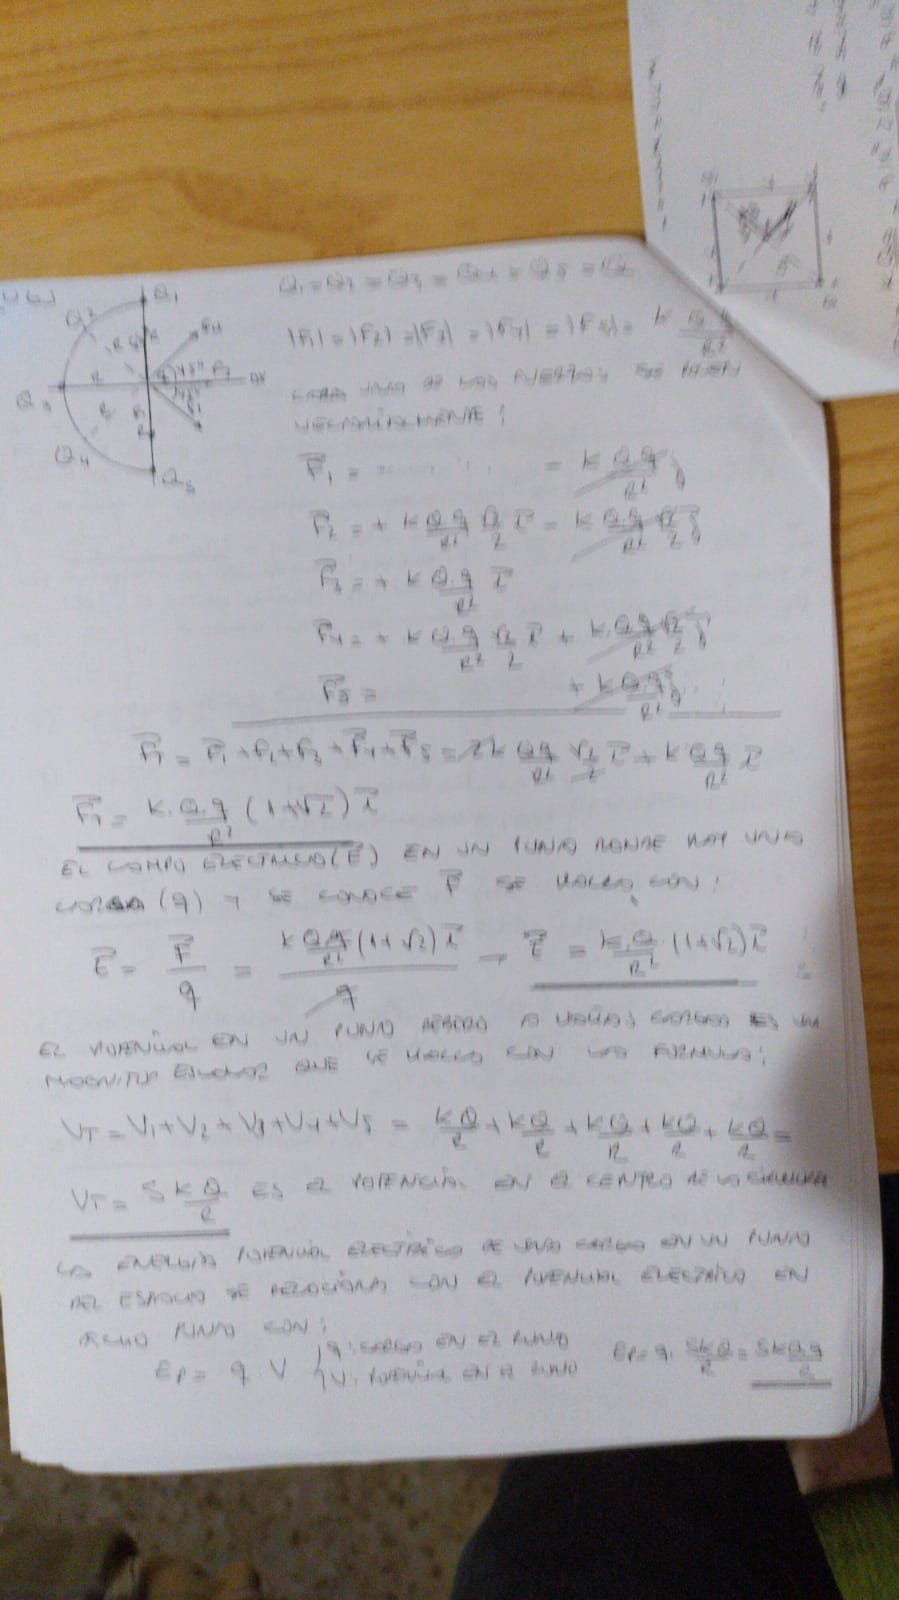 Q1 = Q2 = Q3 = Q4 = Q5 = Q
Q1
Q2
Q3
Q4
Q5
|F1| = |F2| = |F3| = |F4| = |F5| = K Q q / R²
CADA UNA DE LAS FUERZAS SE
VECTORIALMENTE:
F⃗1 = = K Q.q / R² j
F⃗2 = + K Q.q / R² √2 / 2 i⃗ - K Q.q / R² √2 / 2 j
F⃗3 = + K Q.q / R² i⃗
F⃗4 = + K Q.q / R² √2 / 2 i⃗ + K.Q.q / R² √2 / 2 j
F⃗5 = + K Q.q / R² j
F⃗T = F⃗1 + F2 + F⃗3 + F⃗4 + F⃗5 = 2 K Qq / R² √2 / 2 i⃗ + K Qq / R² i⃗
F⃗T = K.Q.q / R² (1+√2) i⃗
EL CAMPO ELECTRICO (E⃗) EN UN PUNTO DONDE HAY UNA
CARGA (q) Y SE CONOCE F⃗ SE HALLA CON:
E⃗ = F⃗ / q = K Q.q / R² (1+√2) i⃗ / q → E⃗ = K.Q / R² (1+√2) i⃗
EL POTENCIAL EN UN PUNTO DEBIDO A VARIAS CARGAS ES UNA
MAGNITUD ESCALAR QUE SE HALLA CON LA FORMULA:
VT = V1 + V2 + V3 + V4 + V5 = KQ / R + KQ / R + KQ / R + KQ / R + KQ / R =
VT = 5 K Q / R ES EL POTENCIAL EN EL CENTRO DE LA
LA ENERGIA POTENCIAL ELECTRICA DE UNA CARGA EN UN PUNTO
DEL ESPACIO SE RELACIONA CON EL POTENCIAL ELECTRICO EN
DICHO PUNTO CON:
EP = q V
q: CARGA EN EL PUNTO
V: POTENCIAL EN EL PUNTO
EP = q. 5KQ / R = 5KQ.q / R